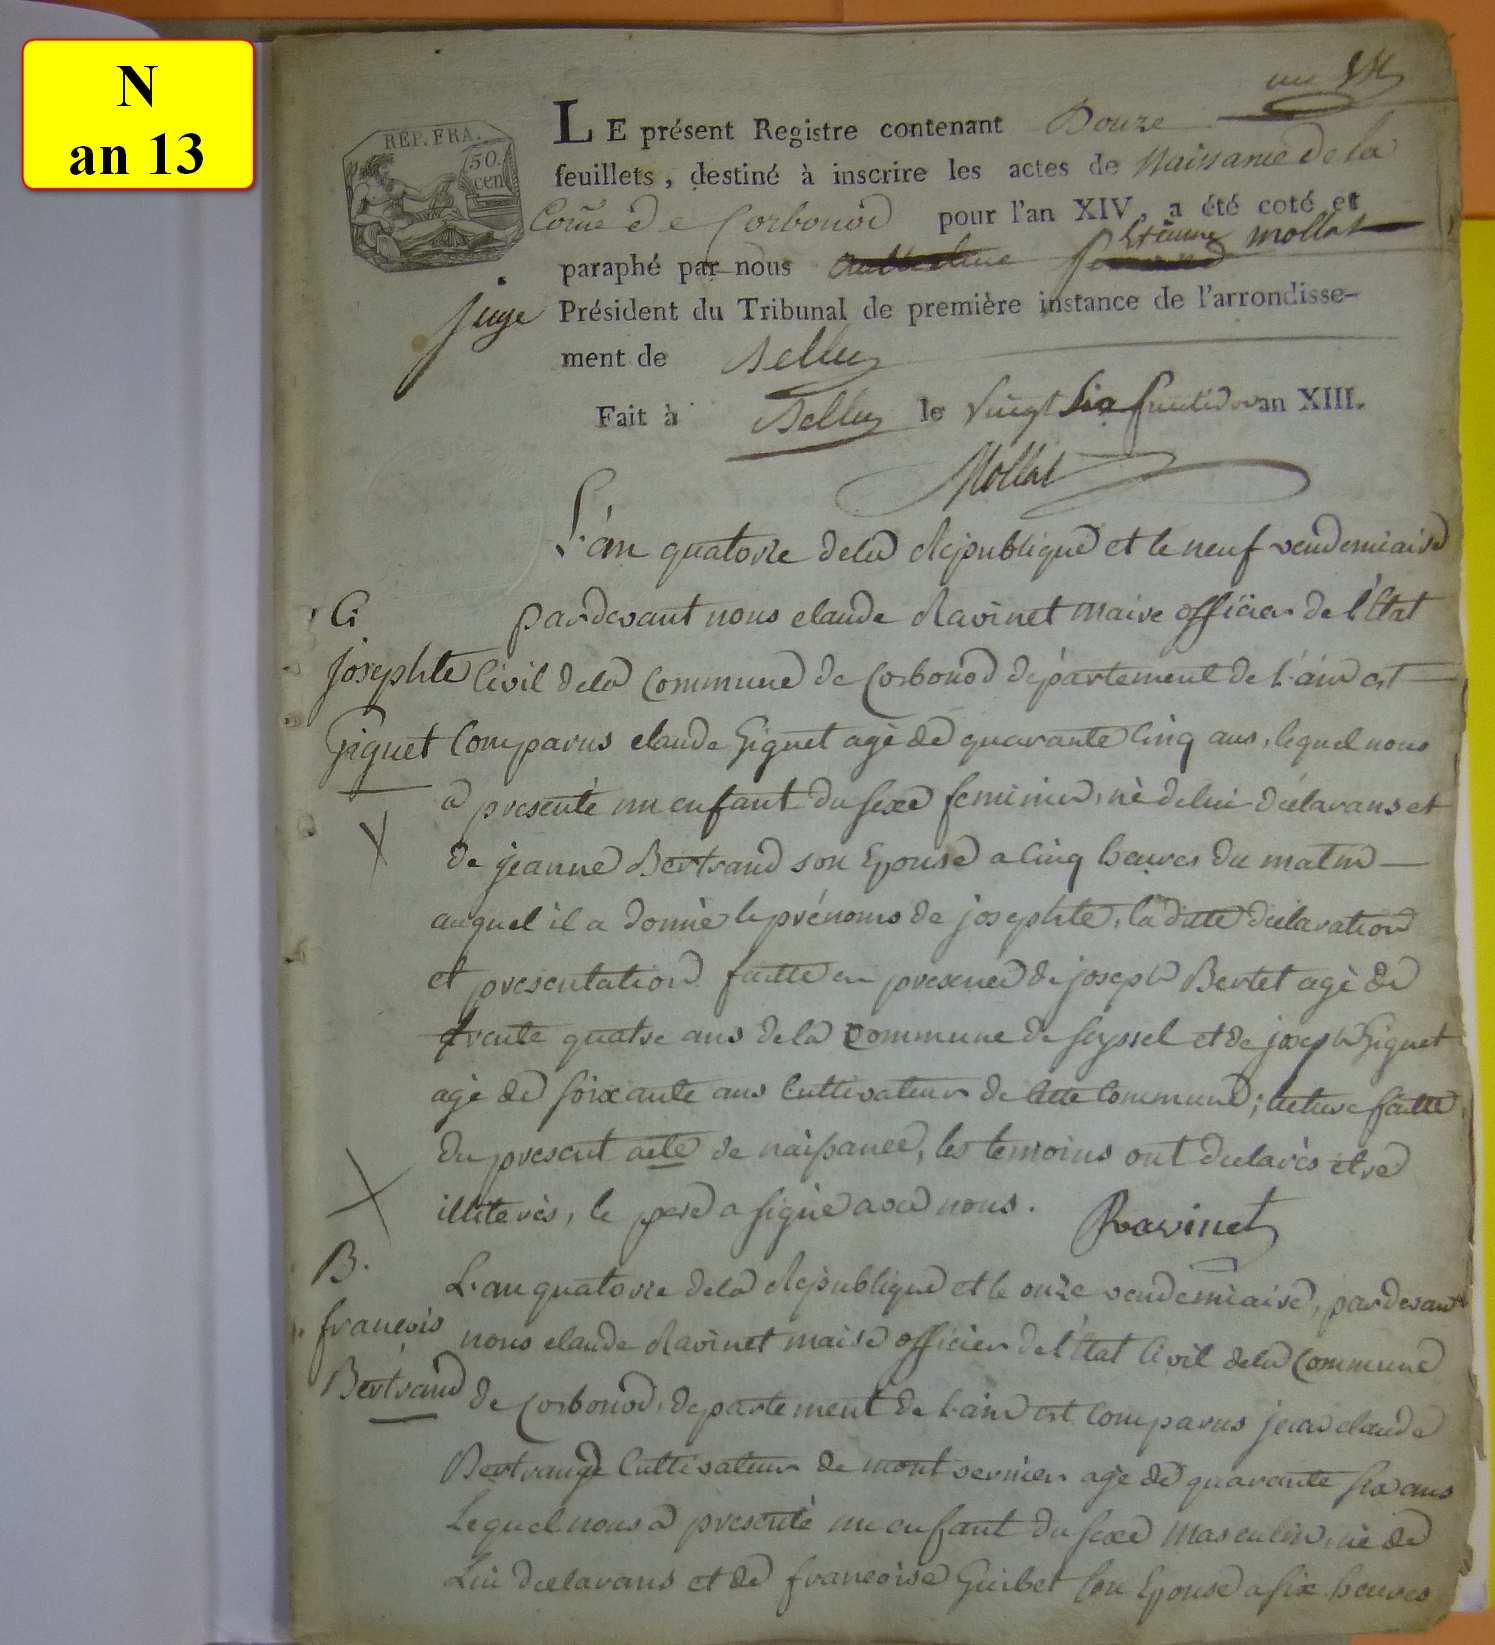 N
an 13
RÉP. FRA.
50.
cen
LE présent Registre contenant Douze
feuillets, destiné à inscrire les actes de Naissance de la
Comē de Corbonod pour l'an XIV, a été coté et
paraphé par nous Etienne Mollat
juge Président du Tribunal de première instance de l'arrondisse-
ment de Belley
Fait à Belley le vingt six fructidor an XIII.
Mollat
L'an quatorze dela Republique et le neuf vendemiaire
pardevant nous claude Ravinet maire officier de l'État
Civil dela Commune de Corbonod département de l'ain est
Comparus claude Giguet agè de quarante Cinq ans, lequel nous
a presenté un enfant du sexe feminin, nè delui declarans et
de jeanne Bertrand son Epouse a Cinq heures du matin
auquel il a donnè le prénoms de josephte, la ditte declaration
et presentation faitte en presence de joseph Bertet agè de
trente quatre ans dela Commune de seyssel et de joseph Giguet
agè de soixante ans Cultivateur de Cette Commune; lecture faitte
du present acte de naissance, les temoins ont declarès etre
illiterès, le pere a signè avec nous. Ravinet
G
josephte
Giguet
L'an quatorze dela Republique et le onze vendemiaire, pardevant
nous claude Ravinet maire officier de l'État Civil dela Commune
de Corbonod, departement de l'ain est Comparus jean claude
Bertrand Cultivateur de mont vernier agè de quarante six ans
Lequel nous a presentè un enfant du sexe masculin, nè de
Lui declarans et de francoise Guibet son Epouse a six heures
B.
francois
Bertrand